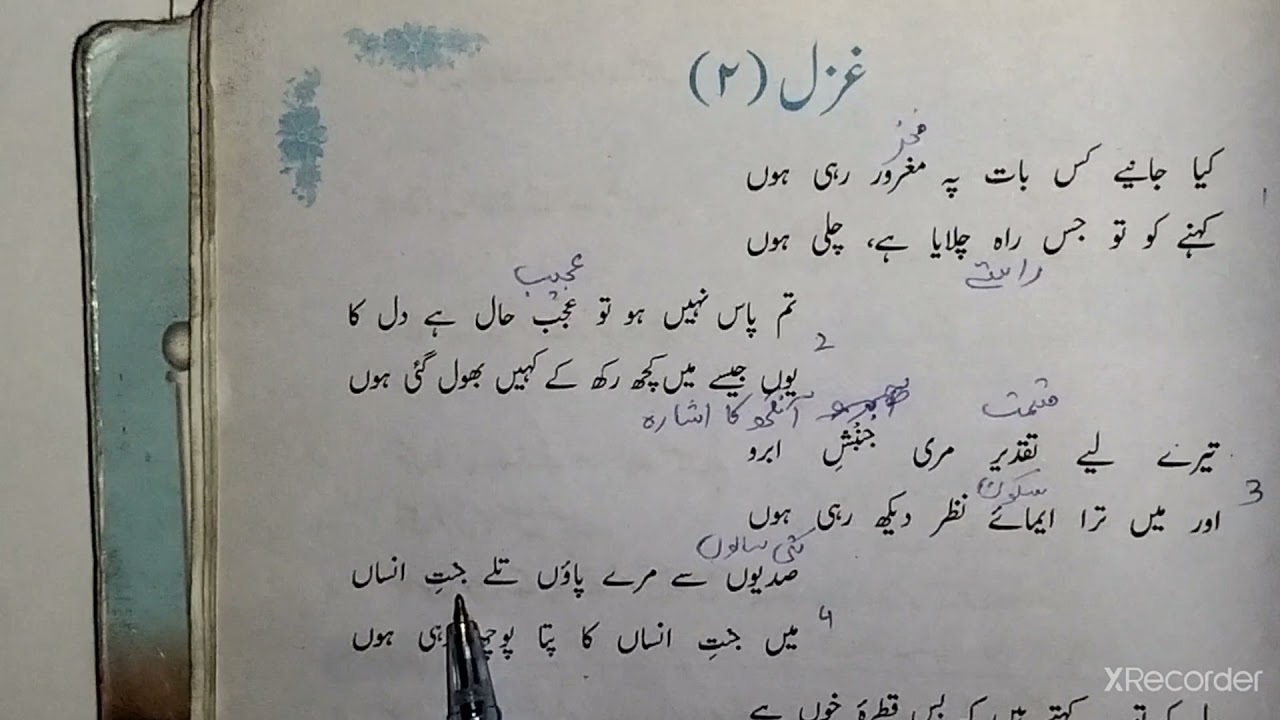 غزل (۲)
فخر
کیا جانیے کس بات پہ مغرور رہی ہوں
1
کہنے کو تو جس راہ چلایا ہے، چلی ہوں
راستے
عجیب
تم پاس نہیں ہو تو عجب حال ہے دل کا
2
یوں جیسے میں کچھ رکھ کے کہیں بھول گئی ہوں
قسمت
آنکھ کا اشارہ
تیرے لیے تقدیر مری جنبشِ ابرو
3
سکون
اور میں ترا ایمائے نظر دیکھ رہی ہوں
کئی سالوں
صدیوں سے مرے پاؤں تلے جنتِ انساں
4
میں جنتِ انساں کا پتا پوچھ رہی ہوں
کہتے ہیں کہ بس قطرۂ خوں ہے
XRecorder